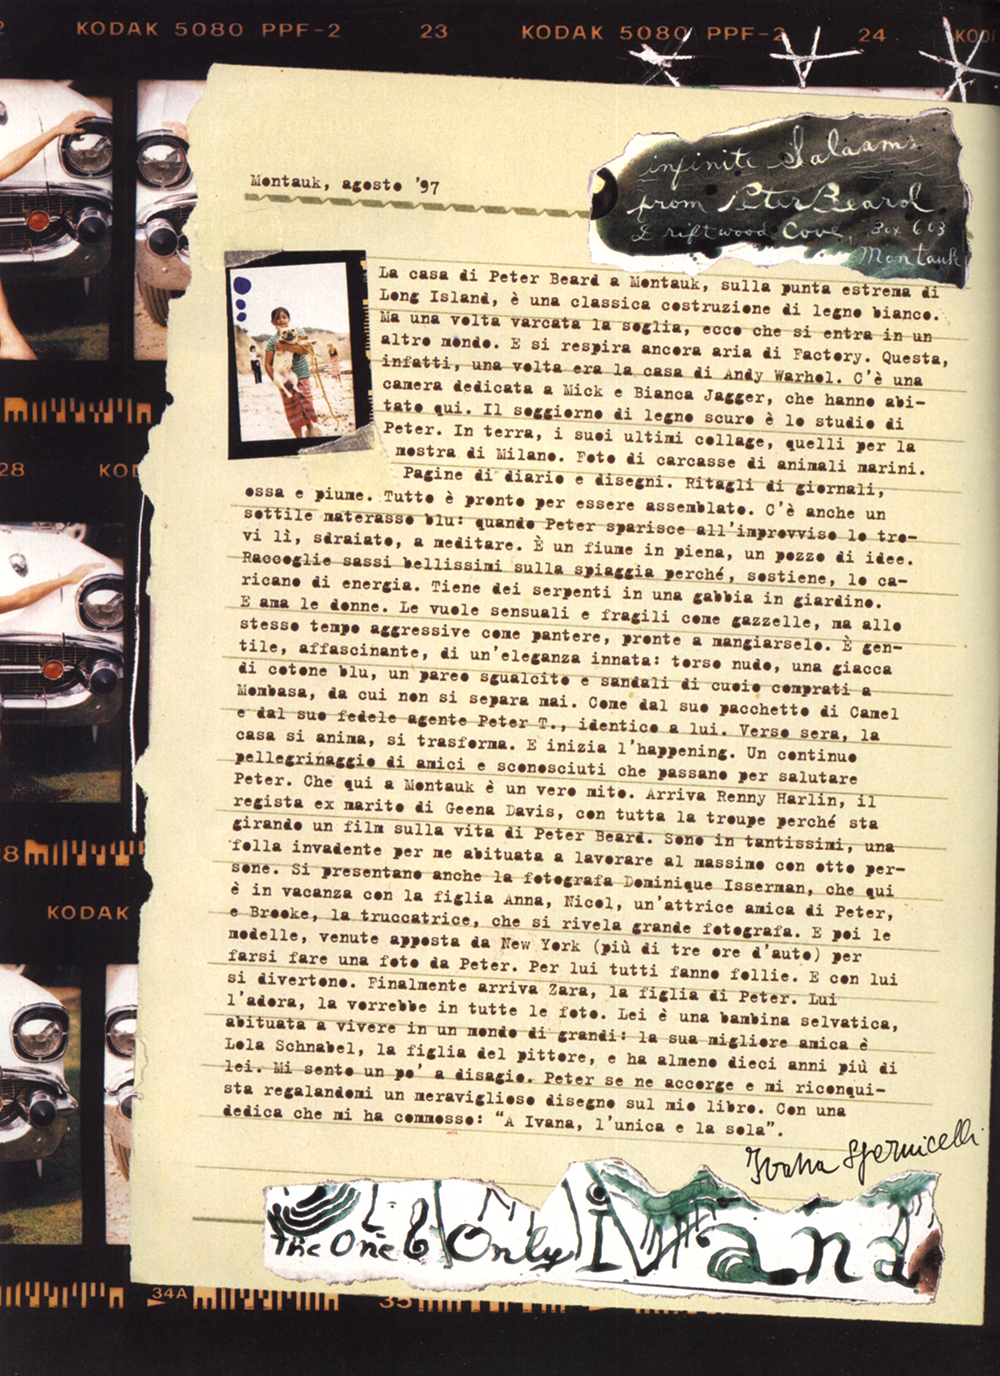 KODAK 5080 PPF-2 23 KODAK 5080 PPF-2 24 KOD
infinite Salaams
from Peter Beard
Driftwood Cove, Box 603
Montauk
Montauk, agosto '97
La casa di Peter Beard a Montauk, sulla punta estrema di
Long Island, è una classica costruzione di legno bianco.
Ma una volta varcata la soglia, ecco che si entra in un
altro mondo. E si respira ancora aria di Factory. Questa,
infatti, una volta era la casa di Andy Warhol. C'è una
camera dedicata a Mick e Bianca Jagger, che hanno abi-
tato qui. Il soggiorno di legno scuro è lo studio di
Peter. In terra, i suoi ultimi collage, quelli per la
mostra di Milano. Foto di carcasse di animali marini.
Pagine di diario e disegni. Ritagli di giornali,
ossa e piume. Tutto è pronto per essere assemblato. C'è anche un
sottile materasso blu: quando Peter sparisce all'improvviso lo tro-
vi lì, sdraiato, a meditare. È un fiume in piena, un pozzo di idee.
Raccoglie sassi bellissimi sulla spiaggia perché, sostiene, lo ca-
ricano di energia. Tiene dei serpenti in una gabbia in giardino.
E ama le donne. Le vuole sensuali e fragili come gazzelle, ma allo
stesso tempo aggressive come pantere, pronte a mangiarselo. È gen-
tile, affascinante, di un'eleganza innata: torso nudo, una giacca
di cotone blu, un pareo sgualcito e sandali di cuoio comprati a
Mombasa, da cui non si separa mai. Come dal suo pacchetto di Camel
e dal suo fedele agente Peter T., identico a lui. Verso sera, la
casa si anima, si trasforma. E inizia l'happening. Un continuo
pellegrinaggio di amici e sconosciuti che passano per salutare
Peter. Che qui a Montauk è un vero mito. Arriva Renny Harlin, il
regista ex marito di Geena Davis, con tutta la troupe perché sta
girando un film sulla vita di Peter Beard. Sono in tantissimi, una
folla invadente per me abituata a lavorare al massimo con otto per-
sone. Si presentano anche la fotografa Dominique Isserman, che qui
è in vacanza con la figlia Anna, Nicol, un'attrice amica di Peter,
e Brooke, la truccatrice, che si rivela grande fotografa. E poi le
modelle, venute apposta da New York (più di tre ore d'auto) per
farsi fare una foto da Peter. Per lui tutti fanno follie. E con lui
si divertono. Finalmente arriva Zara, la figlia di Peter. Lui
l'adora, la vorrebbe in tutte le foto. Lei è una bambina selvatica,
abituata a vivere in un mondo di grandi: la sua migliore amica è
Lola Schnabel, la figlia del pittore, e ha almeno dieci anni più di
lei. Mi sento un po' a disagio. Peter se ne accorge e mi riconqui-
sta regalandomi un meraviglioso disegno sul mio libro. Con una
dedica che mi ha commosso: "A Ivana, l'unica e la sola".
Ivana Spernicelli
The One & Only iVana
28 KOD
28
KODAK
34A 35